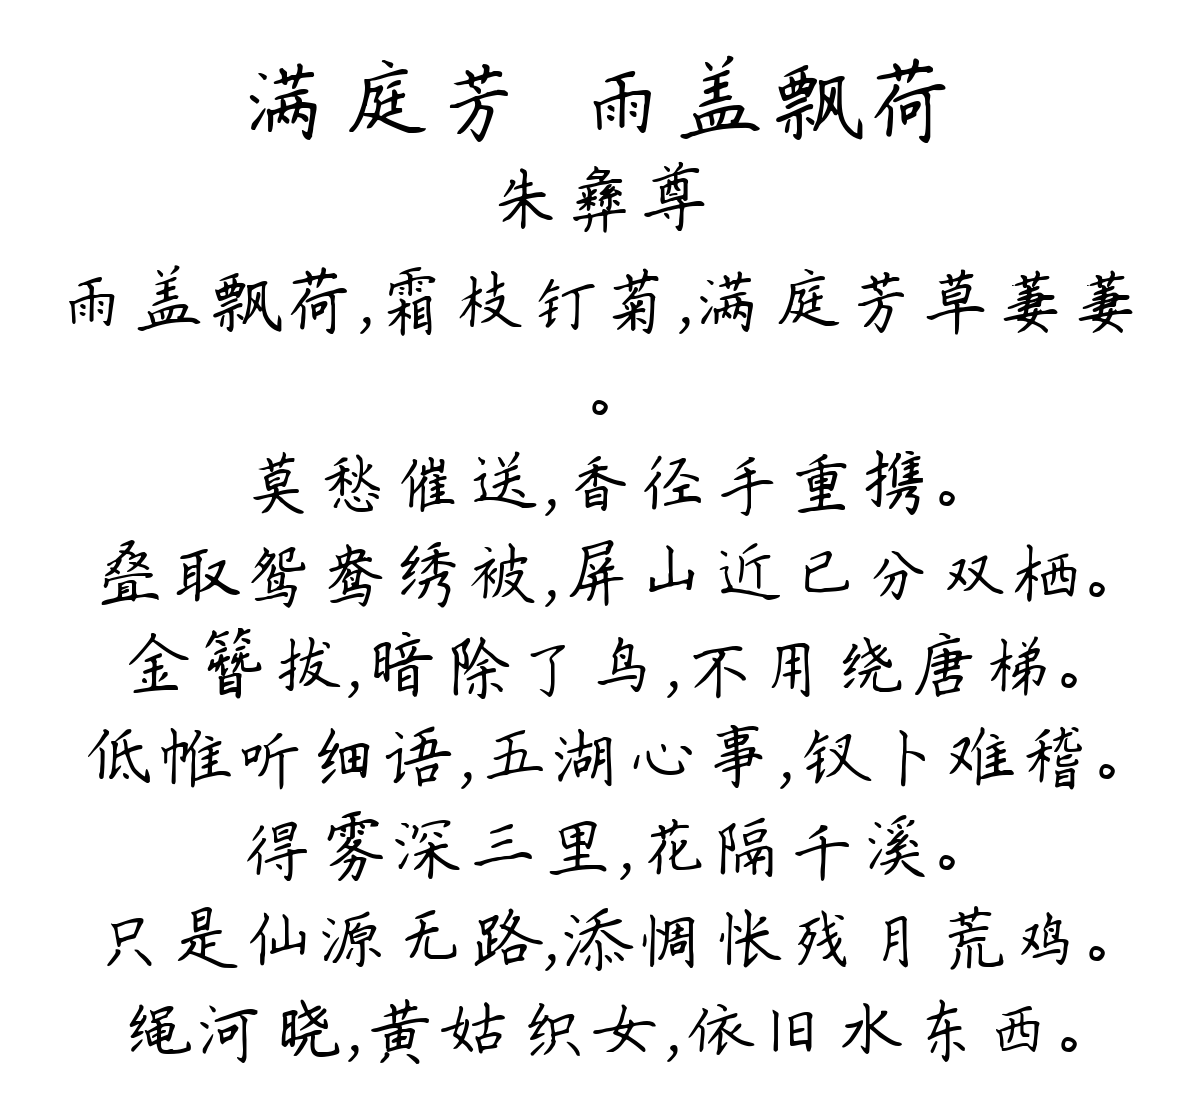 满庭芳 雨盖飘荷
朱彝尊
雨盖飘荷,霜枝钉菊,满庭芳草萋萋
。
莫愁催送,香径手重携。
叠取鸳鸯绣被,屏山近已分双栖。
金簪拔,暗除了鸟,不用绕唐梯。
低帷听细语,五湖心事,钗卜难稽。
得雾深三里,花隔千溪。
只是仙源无路,添惆怅残月荒鸡。
绳河晓,黄姑织女,依旧水东西。